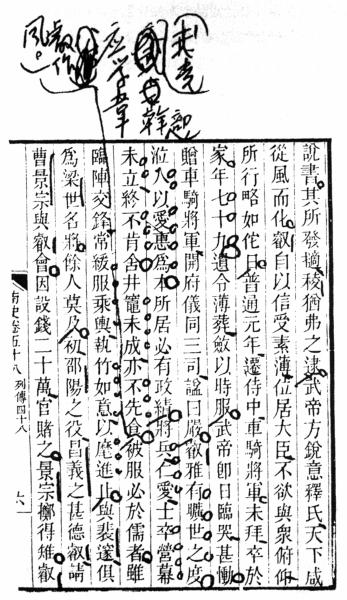 我党
幹部
应学韋
叡作
风。
說書其所發擿稜猶弗之逮武帝方銳意釋氏天下咸
從風而化叡自以信受素薄位居大臣不欲與衆俯仰
所行略如佗日普通元年遷侍中車騎將軍未拜卒於
家年七十九遺令薄葬斂以時服武帝卽日臨哭甚慟
贈車騎將軍開府儀同三司諡曰嚴叡雅有曠世之度
涖人以愛惠爲本所居必有政績將兵仁愛士卒營幕
未立終不肯舍井竈未成亦不先食被服必於儒者雖
臨陣交鋒常緩服乘輿執竹如意以麾進止與裴邃俱
爲梁世名將餘人莫及初邵陽之役昌義之甚德叡請
曹景宗與叡會因設錢二十萬官賭之景宗擲得雉叡
南史卷五十八 列傳四十八